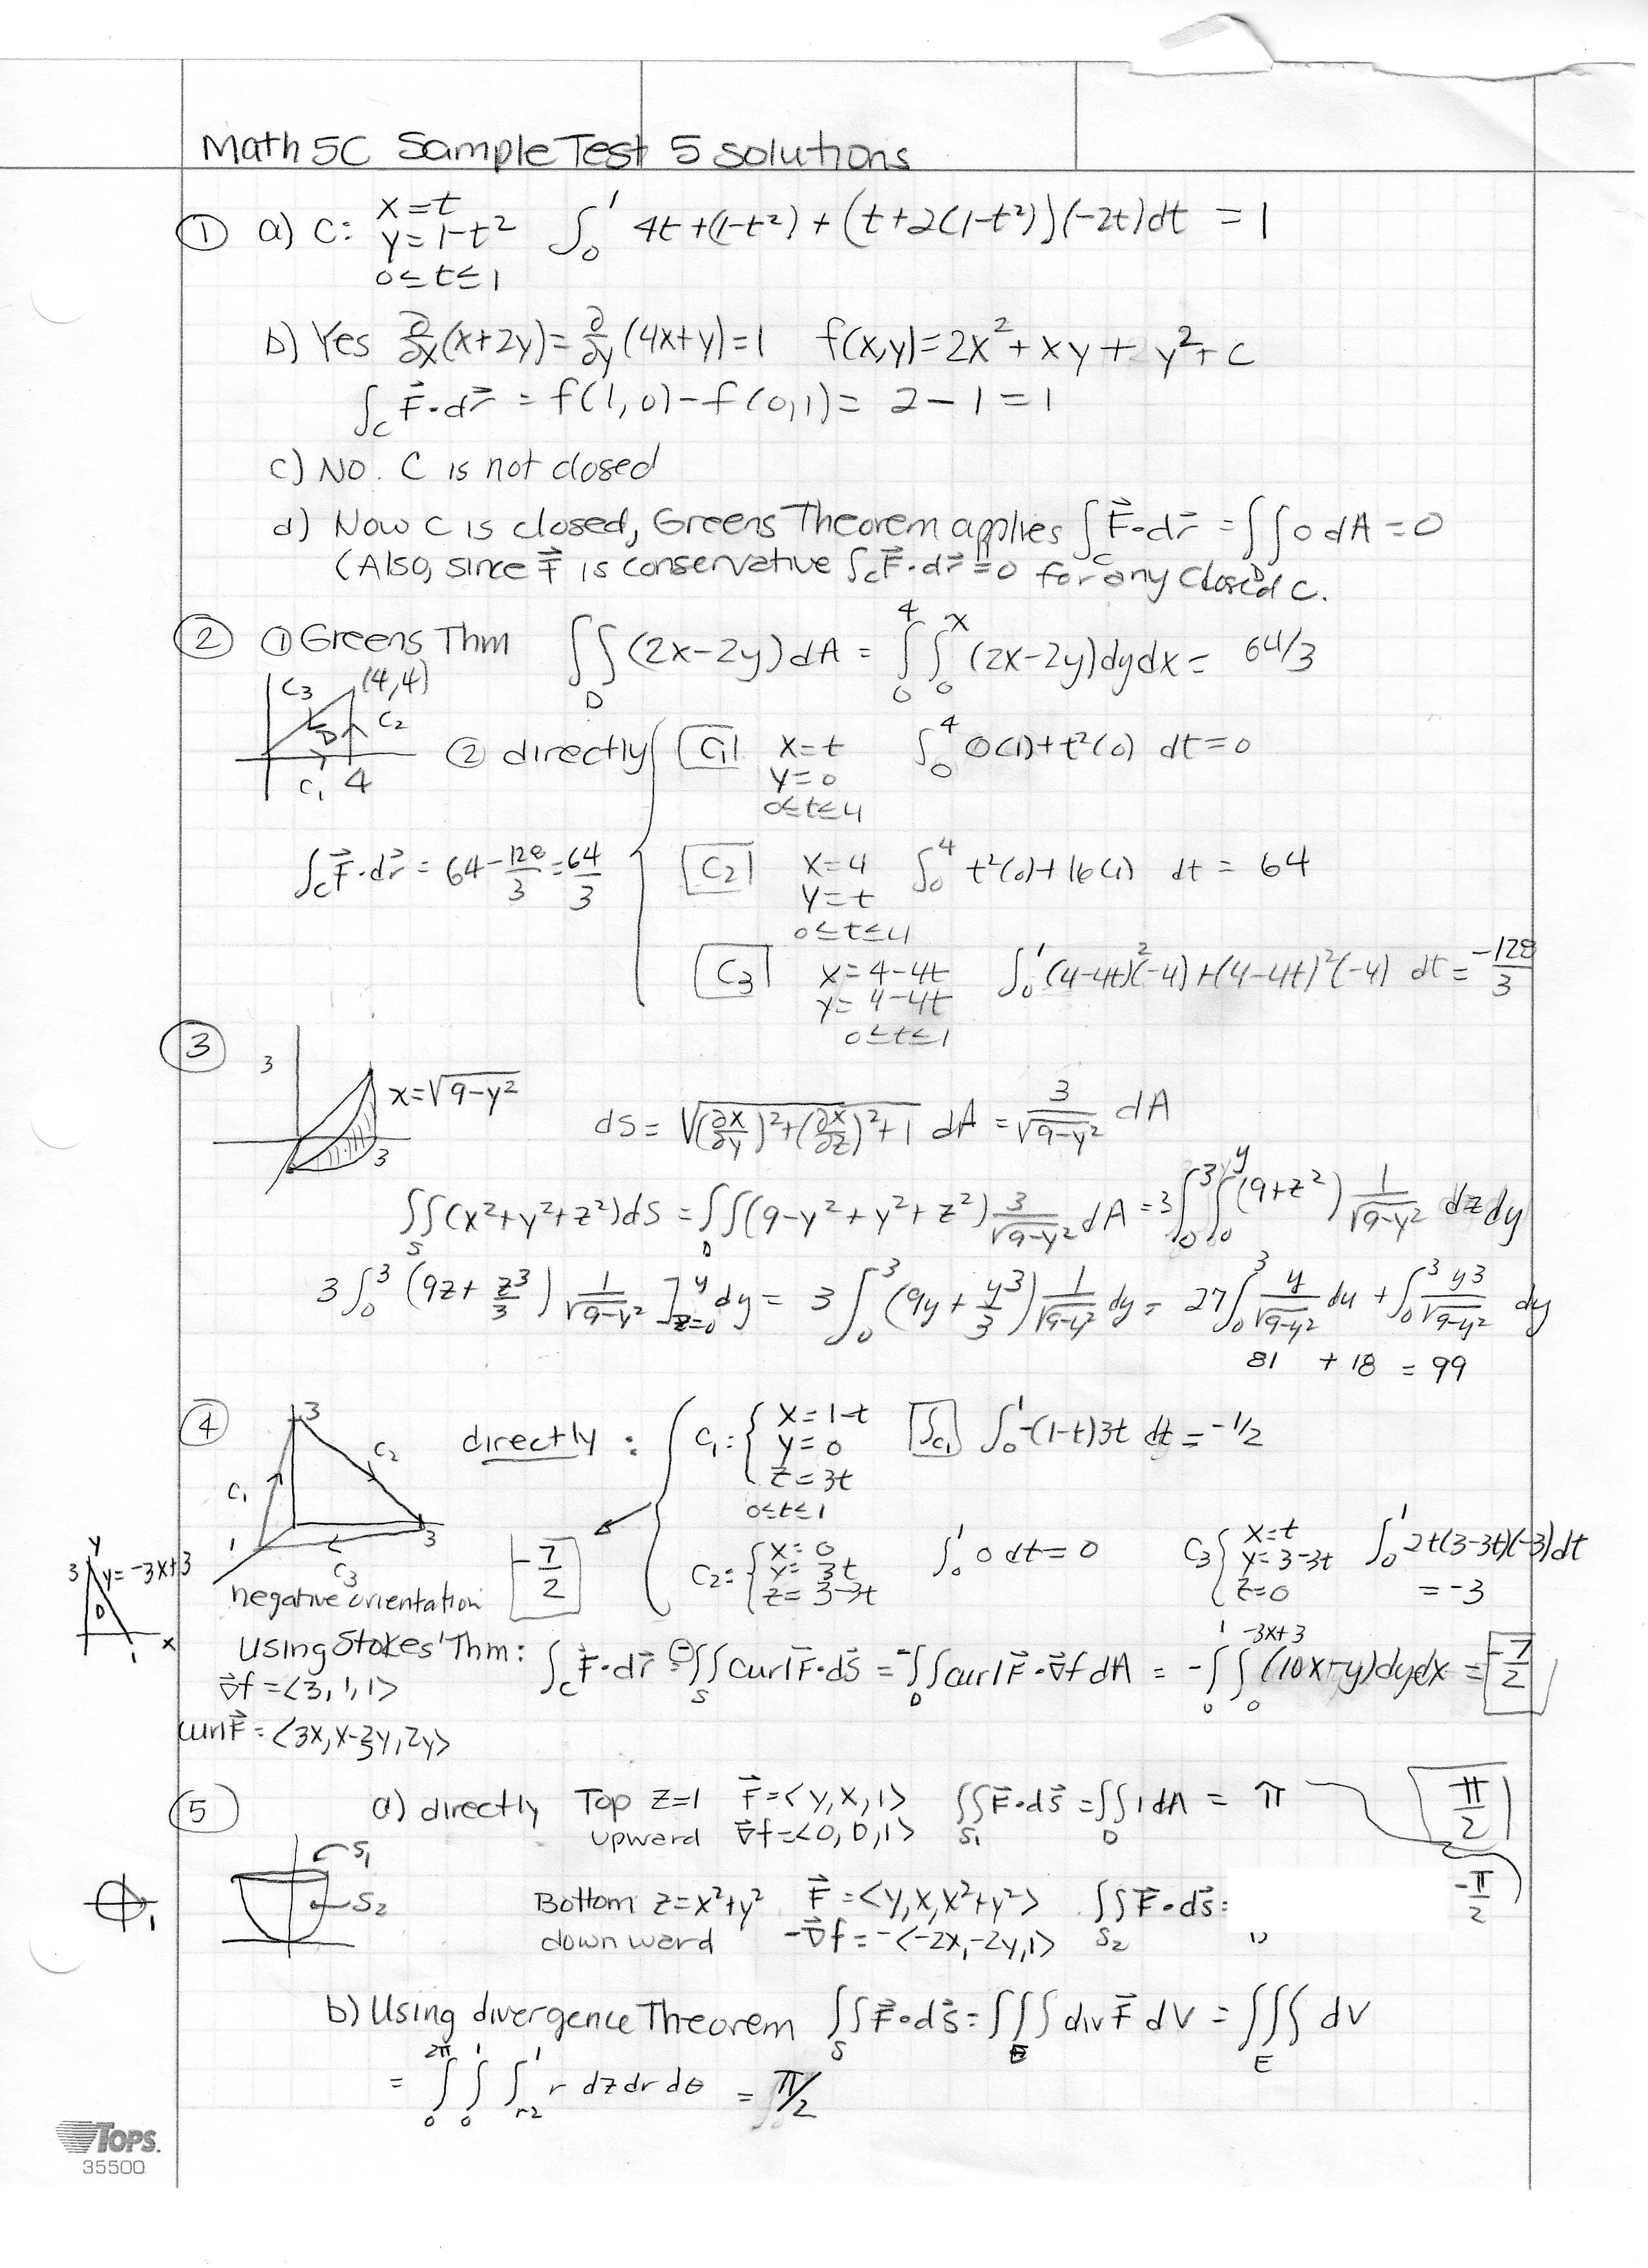 Math 5C Sample Test 5 solutions
① a) C: x=t y=1-t² 0≤t≤1 ∫₀¹ 4t+(1-t²)+(t+2(1-t²))(-2t)dt = 1
b) Yes ∂/∂x(x+2y)=∂/∂y(4x+y)=1 f(x,y)=2x²+xy+y²+C
∫_C F⃗·dr⃗ = f(1,0)-f(0,1)= 2-1=1
c) NO. C is not closed
d) Now C is closed, Greens Theorem applies ∫_C F⃗·dr⃗ = ∫∫_D 0 dA = 0
(Also, since F⃗ is conservative ∫_C F⃗·dr⃗ = 0 for any closed C.
② ① Greens Thm ∫∫_D (2x-2y)dA = ∫₀⁴∫₀ˣ (2x-2y)dydx = 64/3
C₃ (4,4) D C₂ C₁ 4
② directly C₁ x=t y=0 0≤t≤4 ∫₀⁴ 0(1)+t²(0) dt=0
∫_C F⃗·dr⃗ = 64-128/3=64/3
C₂ x=4 y=t 0≤t≤4 ∫₀⁴ t²(0)+16(1) dt = 64
C₃ x=4-4t y=4-4t 0≤t≤1 ∫₀¹ (4-4t)²(-4)+(4-4t)²(-4) dt = -128/3
③ 3 x=√(9-y²) 3
dS = √((∂x/∂y)²+(∂x/∂z)²+1) dA = 3/√(9-y²) dA
∫∫_S (x²+y²+z²)dS = ∫∫_D (9-y²+y²+z²) 3/√(9-y²) dA = 3∫₀³∫₀ʸ (9+z²) 1/√(9-y²) dzdy
3∫₀³ (9z+z³/3) 1/√(9-y²) ]_{z=0}^y dy = 3∫₀³ (9y+y³/3) 1/√(9-y²) dy = 27∫₀³ y/√(9-y²) dy + ∫₀³ y³/√(9-y²) dy
81 + 18 = 99
④ 3 C₂ C₁ 1 3 C₃
directly: C₁: {x=1-t y=0 z=3t 0≤t≤1 ∫C₁ ∫₀¹ -(1-t)3t dt = -1/2
-7/2 C₂: {x=0 y=3t z=3-3t ∫₀¹ 0 dt=0 C₃ {x=t y=3-3t z=0 ∫₀¹ 2t(3-3t)(-3)dt = -3
y 3 y=-3x+3 D x 1
negative orientation
Using Stokes' Thm: ∫_C F⃗·dr⃗ = ⊖∫∫_S curl F⃗·dS⃗ = -∫∫_D curl F⃗·∇⃗f dA = -∫₀¹∫₀^{-3x+3} (10x-y)dydx = -7/2
∇⃗f=<3,1,1>
curl F⃗ = <3x, x-3y, 2y>
⑤ a) directly Top z=1 F⃗=<y,x,1> ∫∫_{S₁} F⃗·dS⃗ = ∫∫_D 1dA = π π/2
upward ∇⃗f=<0,0,1>
S₁ S₂ 1
Bottom z=x²+y² F⃗=<y,x,x²+y²> ∫∫_{S₂} F⃗·dS⃗= -π/2
downward -∇⃗f=-<-2x,-2y,1>
b) Using divergence Theorem ∫∫_S F⃗·dS⃗ = ∫∫∫_E div F⃗ dV = ∫∫∫_E dV
= ∫₀^{2π}∫₀¹∫_{r²}¹ r dzdrdθ = π/2
TOPS.
35500